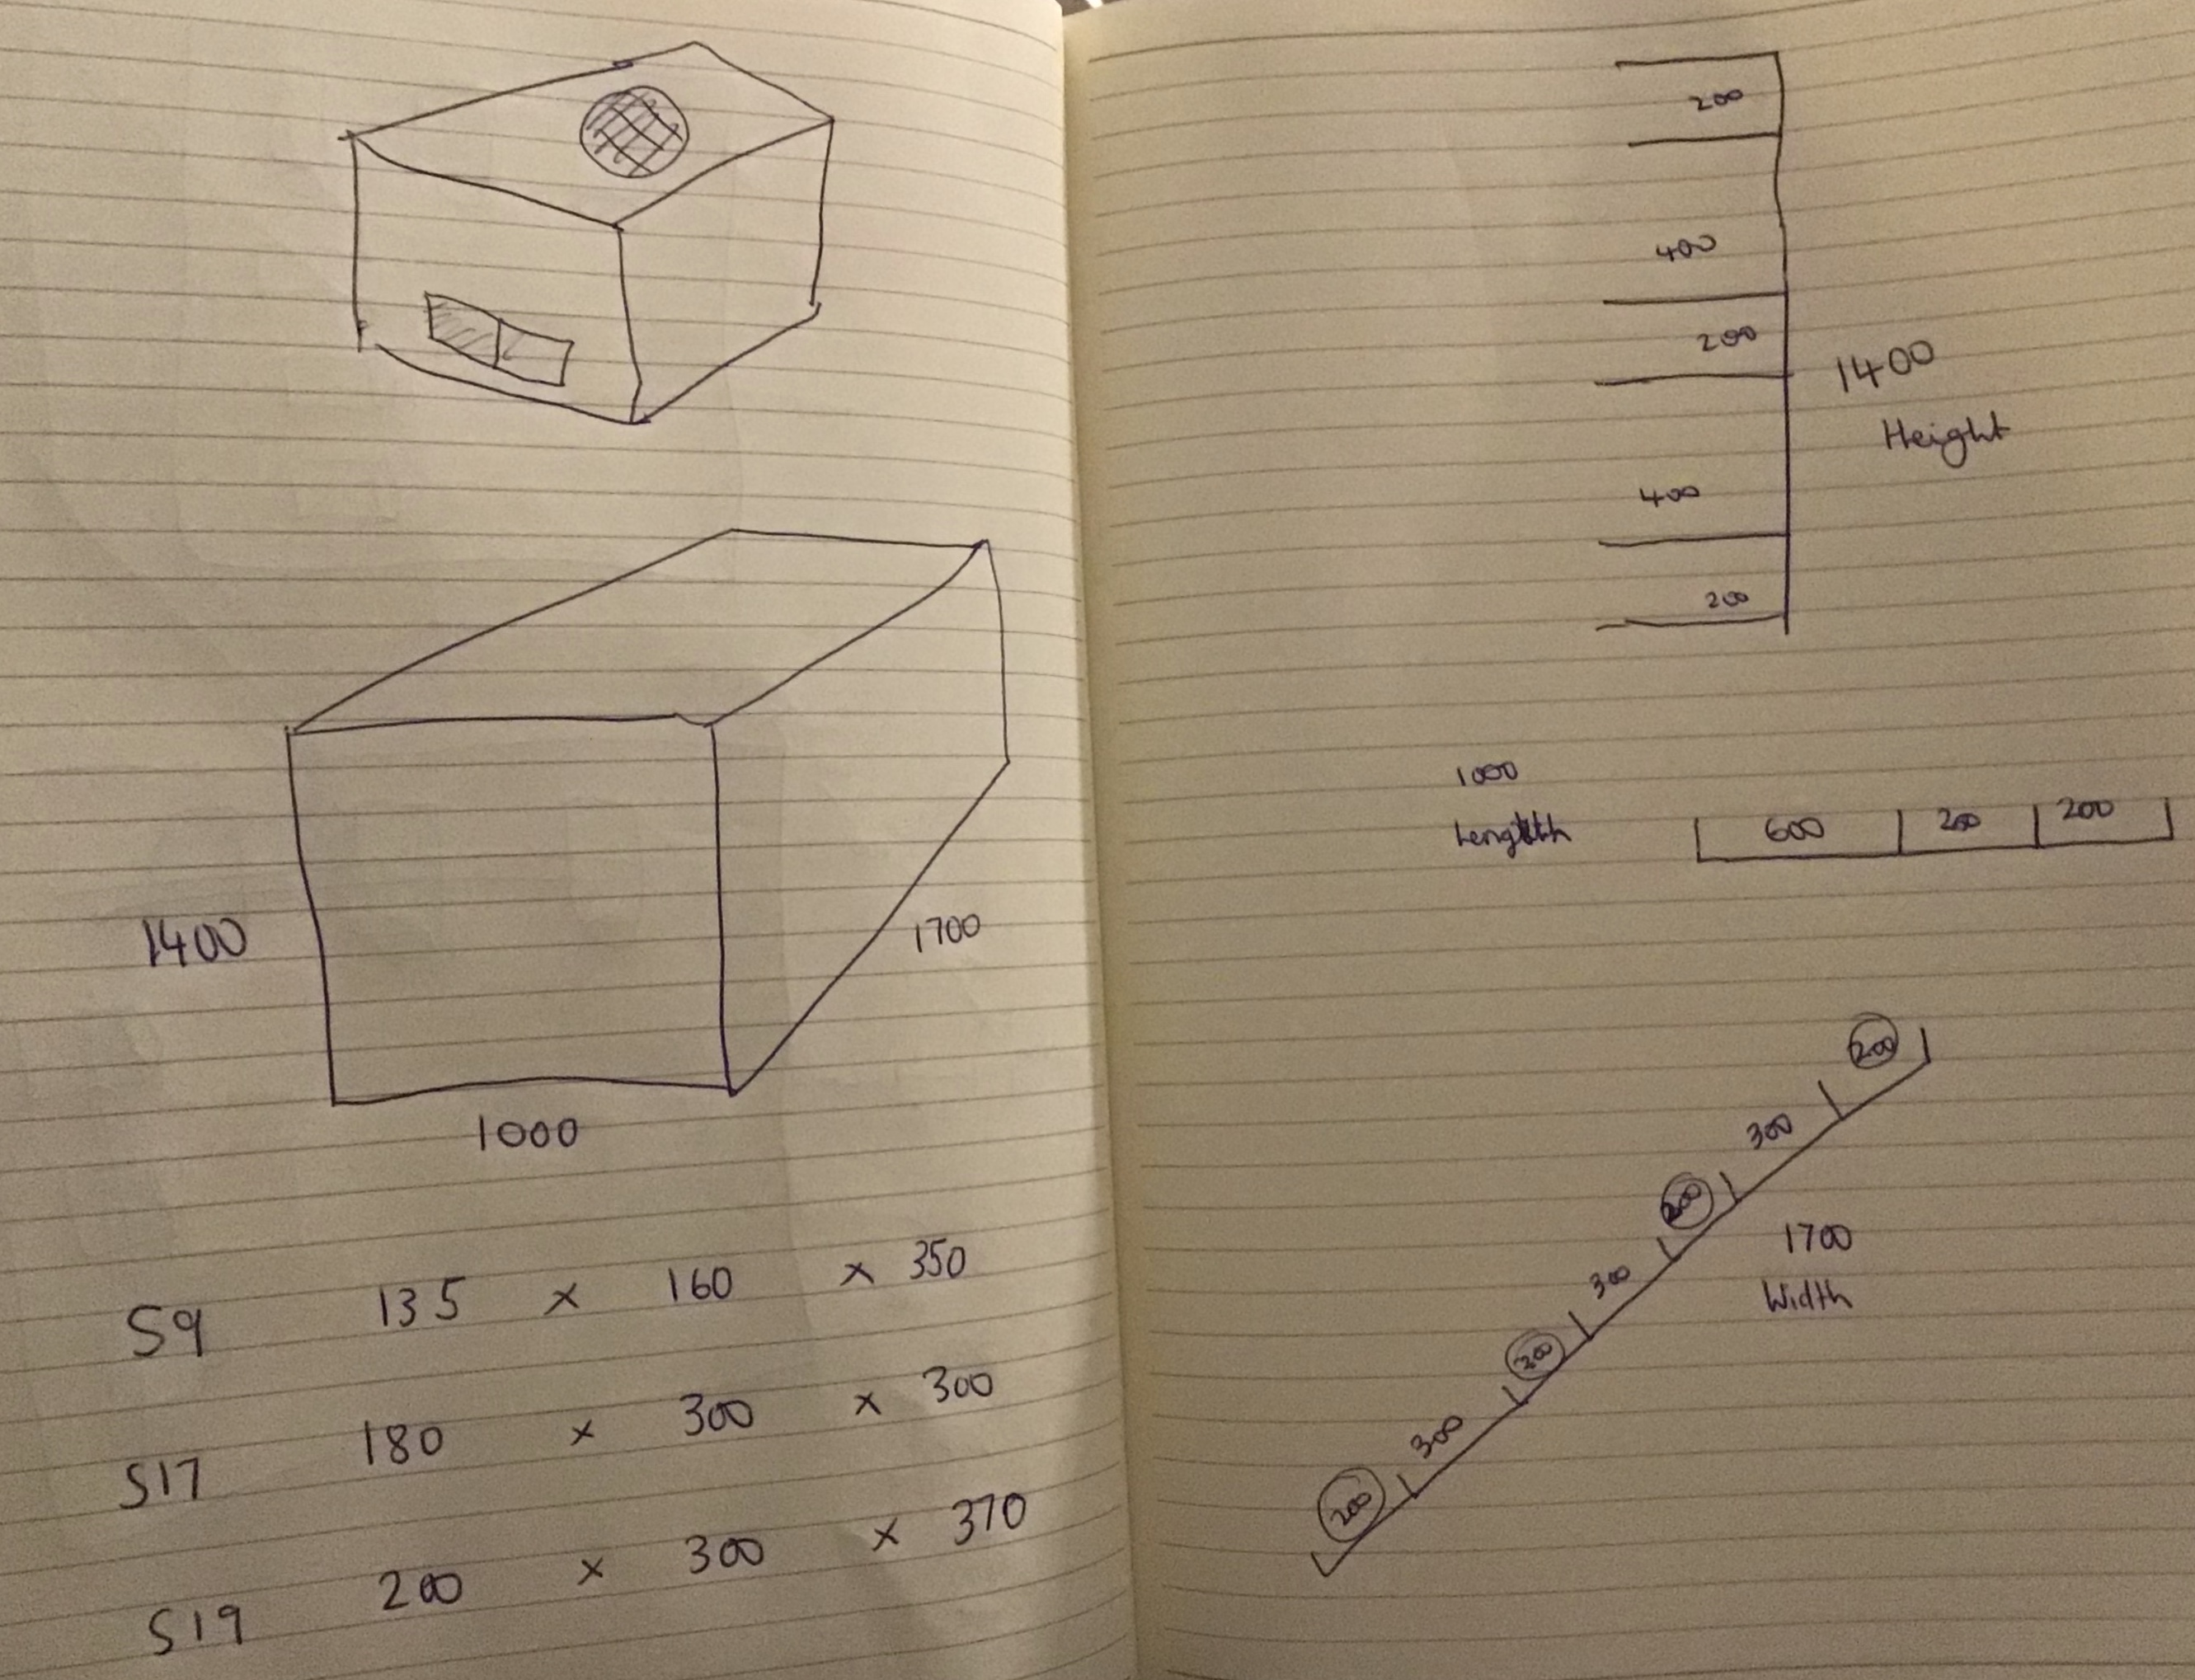 1400
1700
1000
S9 135 x 160 x 350
S17 180 x 300 x 300
S19 200 x 300 x 370
200
400
200
1400
Height
400
200
1000
Length
600 200 200
200
300
200
300
200
300
200
1700
Width